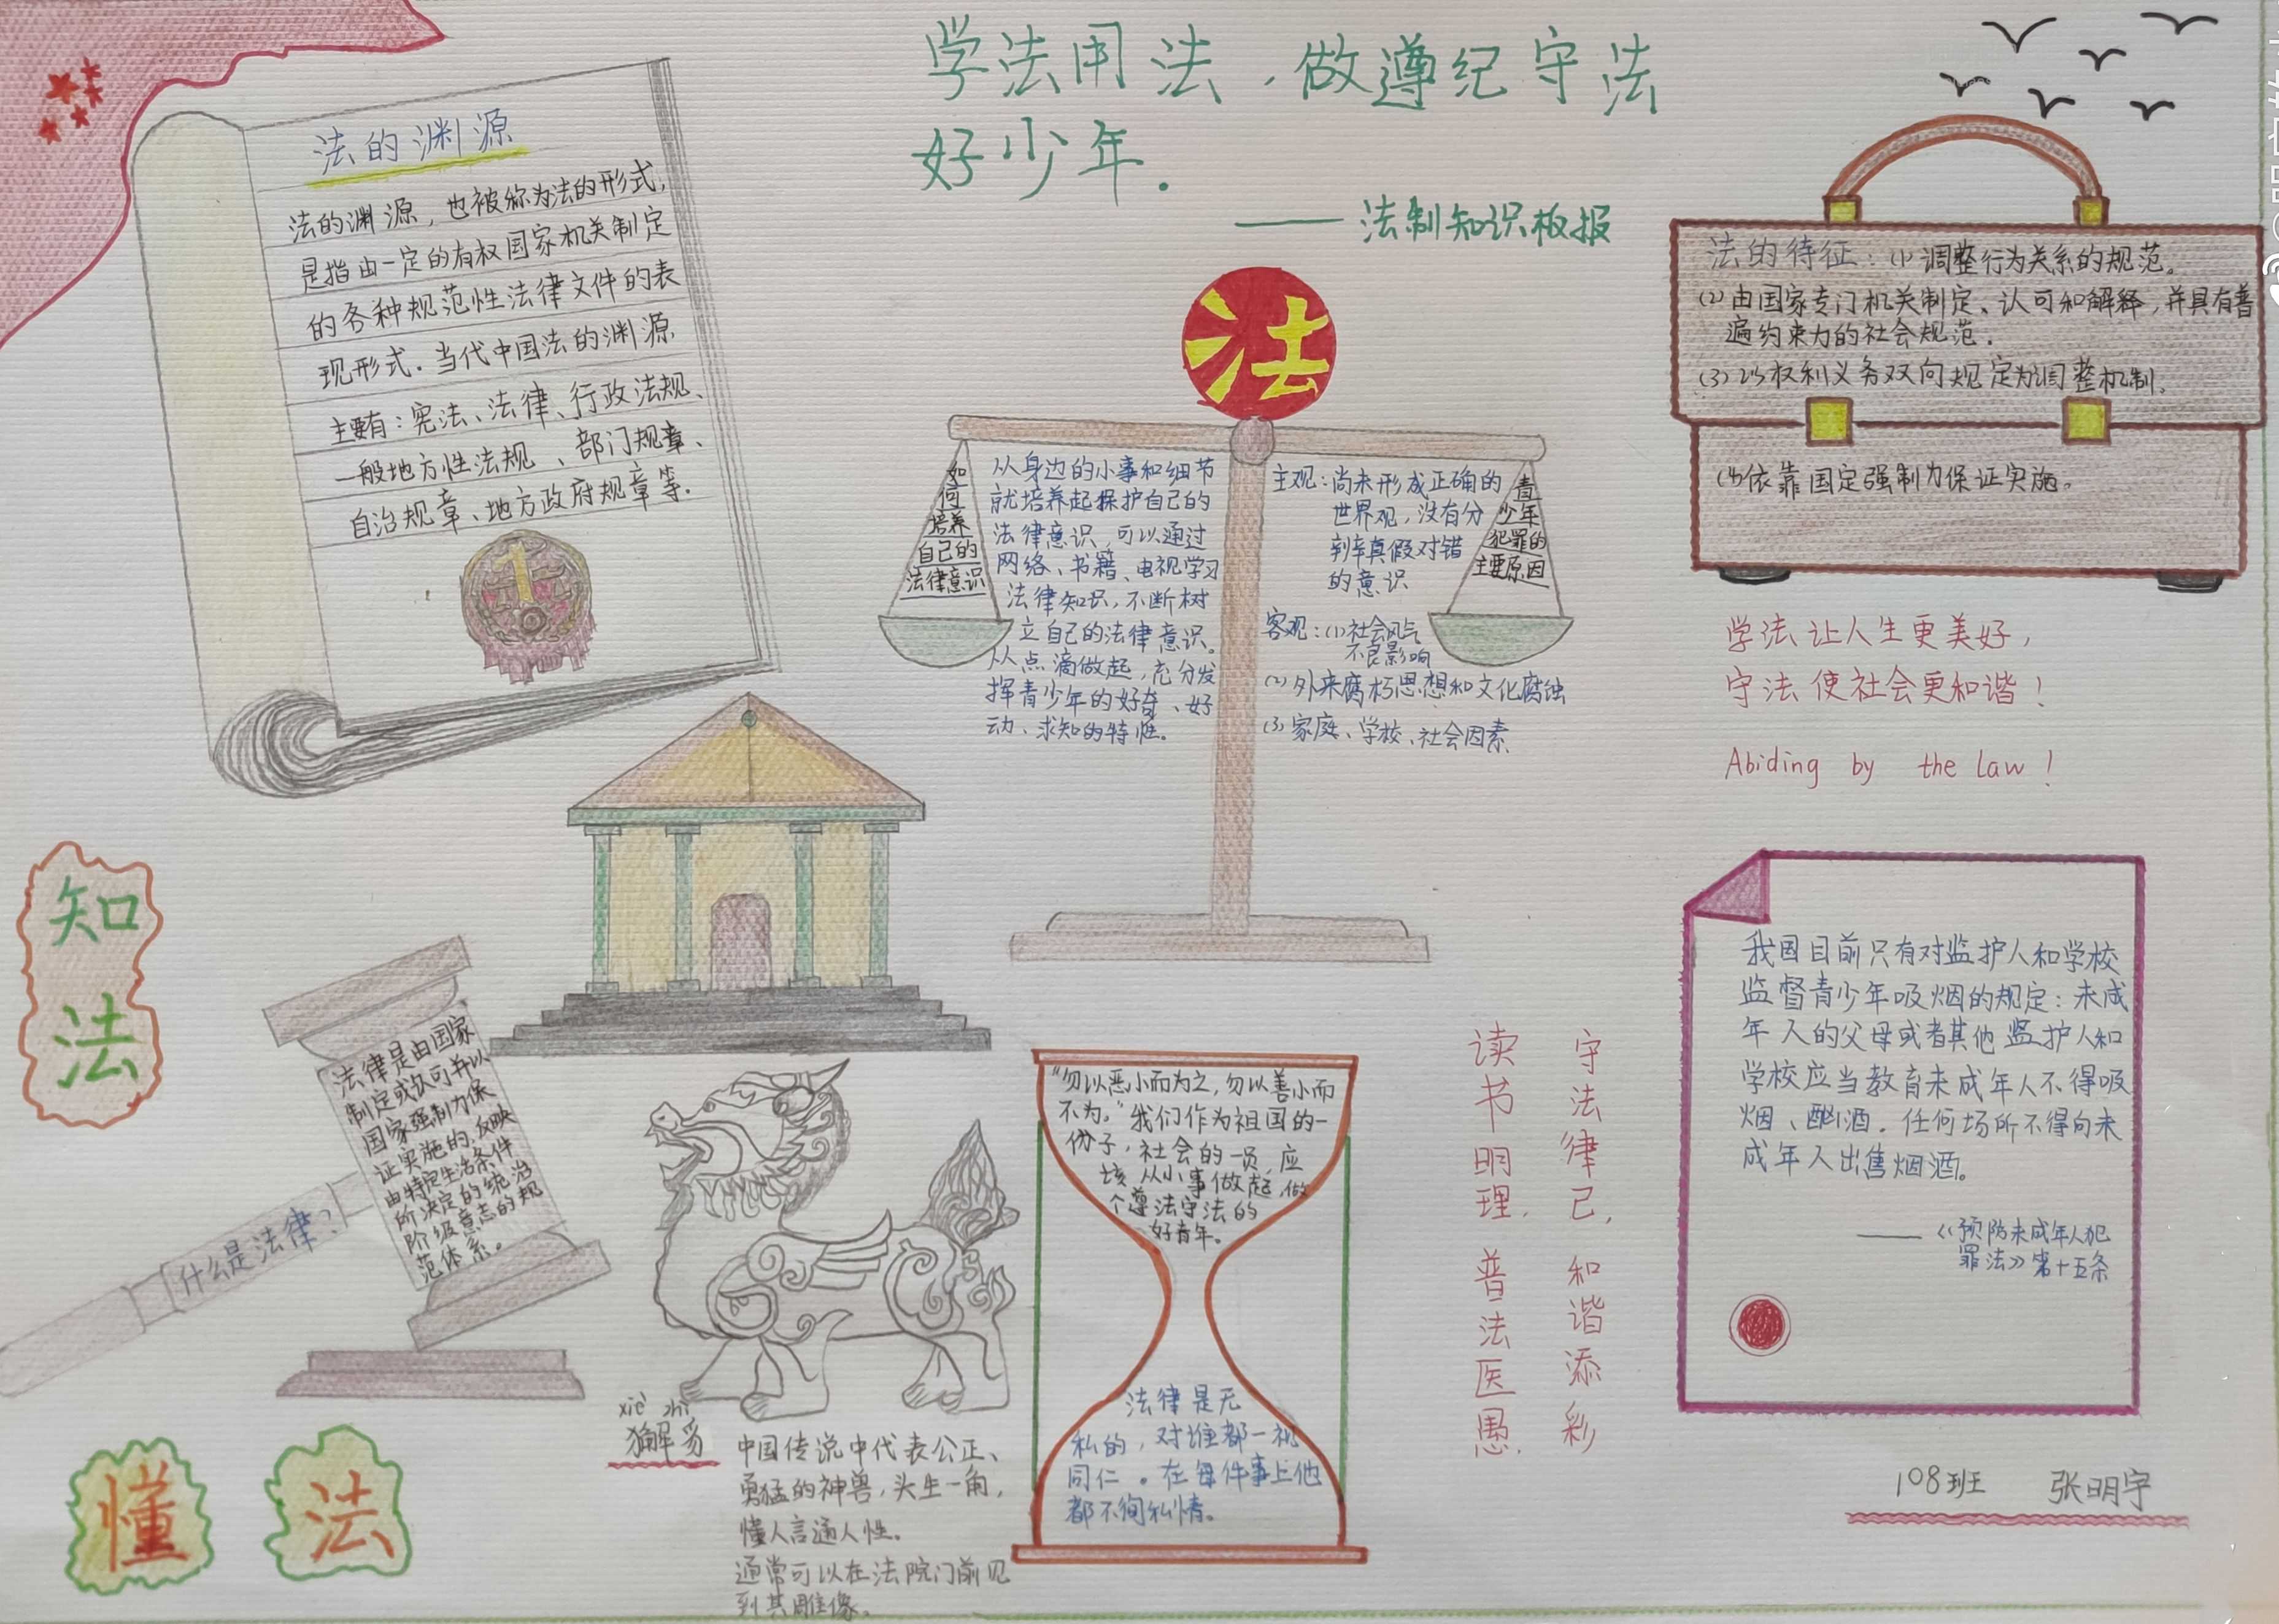 学法用法，做遵纪守法
好少年．
——法制知识板报
法的渊源
法的渊源，也被称为法的形式，
是指由一定的有权国家机关制定
的各种规范性法律文件的表
现形式．当代中国法的渊源
主要有：宪法、法律、行政法规、
一般地方性法规、部门规章、
自治规章、地方政府规章等．
法
如何
培养
自己的
法律意识
从身边的小事和细节
就培养起保护自己的
法律意识，可以通过
网络、书籍、电视学习
法律知识，不断树
立自己的法律意识。
从点滴做起，充分发
挥青少年的好奇、好
动、求知的特性。
主观：尚未形成正确的
世界观，没有分
辨真假对错
的意识
客观：(1)社会风气
不良影响
(2)外来腐朽思想和文化腐蚀
(3)家庭、学校、社会因素
青
少年
犯罪的
主要原因
法的待征：(1)调整行为关系的规范。
(2)由国家专门机关制定、认可和解释，并具有普
遍约束力的社会规范．
(3)以权利义务双向规定为调整机制．
(4)依靠国定强制力保证实施。
学法让人生更美好，
守法使社会更和谐！
Abiding by the law！
知法
什么是法律？
法律是由国家
制定或认可并以
国家强制力保
证实施的，反映
由特定生活条件
所决定的统治
阶级意志的规
范体系。
懂法
xiè zhì
獬豸
中国传说中代表公正、
勇猛的神兽，头生一角，
懂人言通人性。
通常可以在法院门前见
到其雕像。
“勿以恶小而为之，勿以善小而
不为。”我们作为祖国的一
份子，社会的一员，应
该从小事做起，做
个遵法守法的
好青年。
法律是无
私的，对谁都一视
同仁。在每件事上他
都不徇私情。
读书明理，普法医愚，
守法律己，和谐添彩
我国目前只有对监护人和学校
监督青少年吸烟的规定：未成
年人的父母或者其他监护人和
学校应当教育未成年人不得吸
烟、酗酒．任何场所不得向未
成年人出售烟酒。
——《预防未成年人犯
罪法》第十五条
108班 张明宇